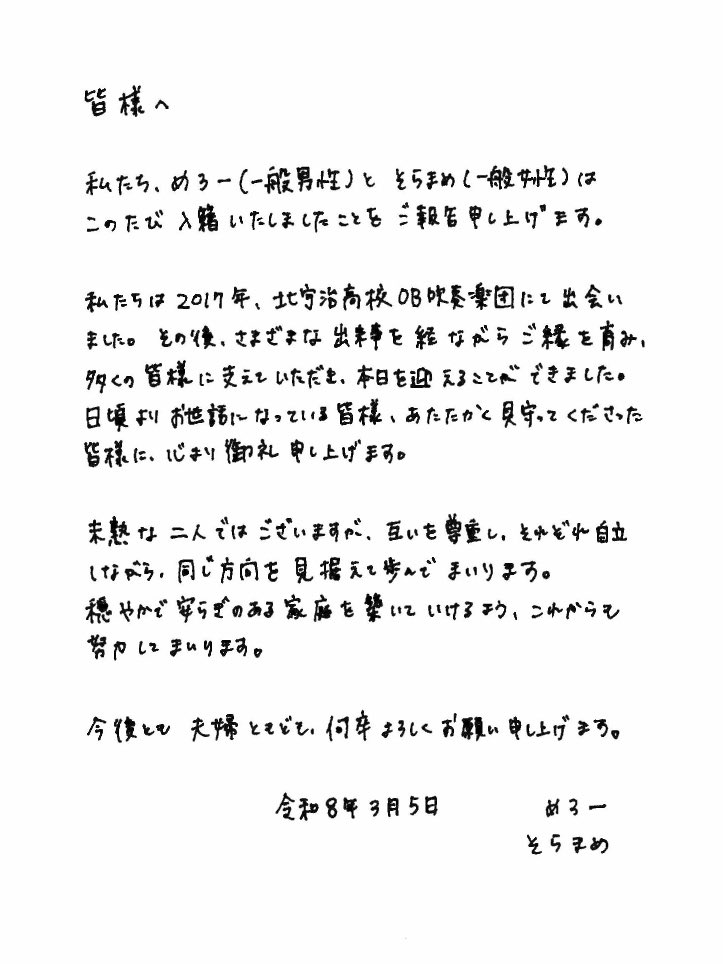 皆様へ
私たち、めろー(一般男性)と そらまめ(一般女性)は
このたび 入籍いたしましたことを ご報告申し上げます。
私たちは 2017年、北宇治高校OB吹奏楽団にて 出会い
ました。 その後、さまざまな 出来事を 経ながら ご縁を育み、
多くの 皆様に支えていただき、本日を迎えることができました。
日頃より お世話になっている皆様、あたたかく見守ってくださった
皆様に、心より 御礼 申し上げます。
未熟な 二人ではございますが、互いを尊重し、それぞれ自立
しながら、同じ方向を 見据えて歩んで まいります。
穏やかで安らぎのある 家庭を 築いていけるよう、これからも
努力してまいります。
今後とも 夫婦ともども、何卒よろしくお願い申し上げます。
令和8年3月5日 めろー
そらまめ